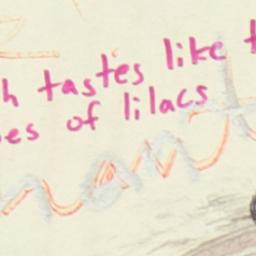 h tastes like t
es of lilacs